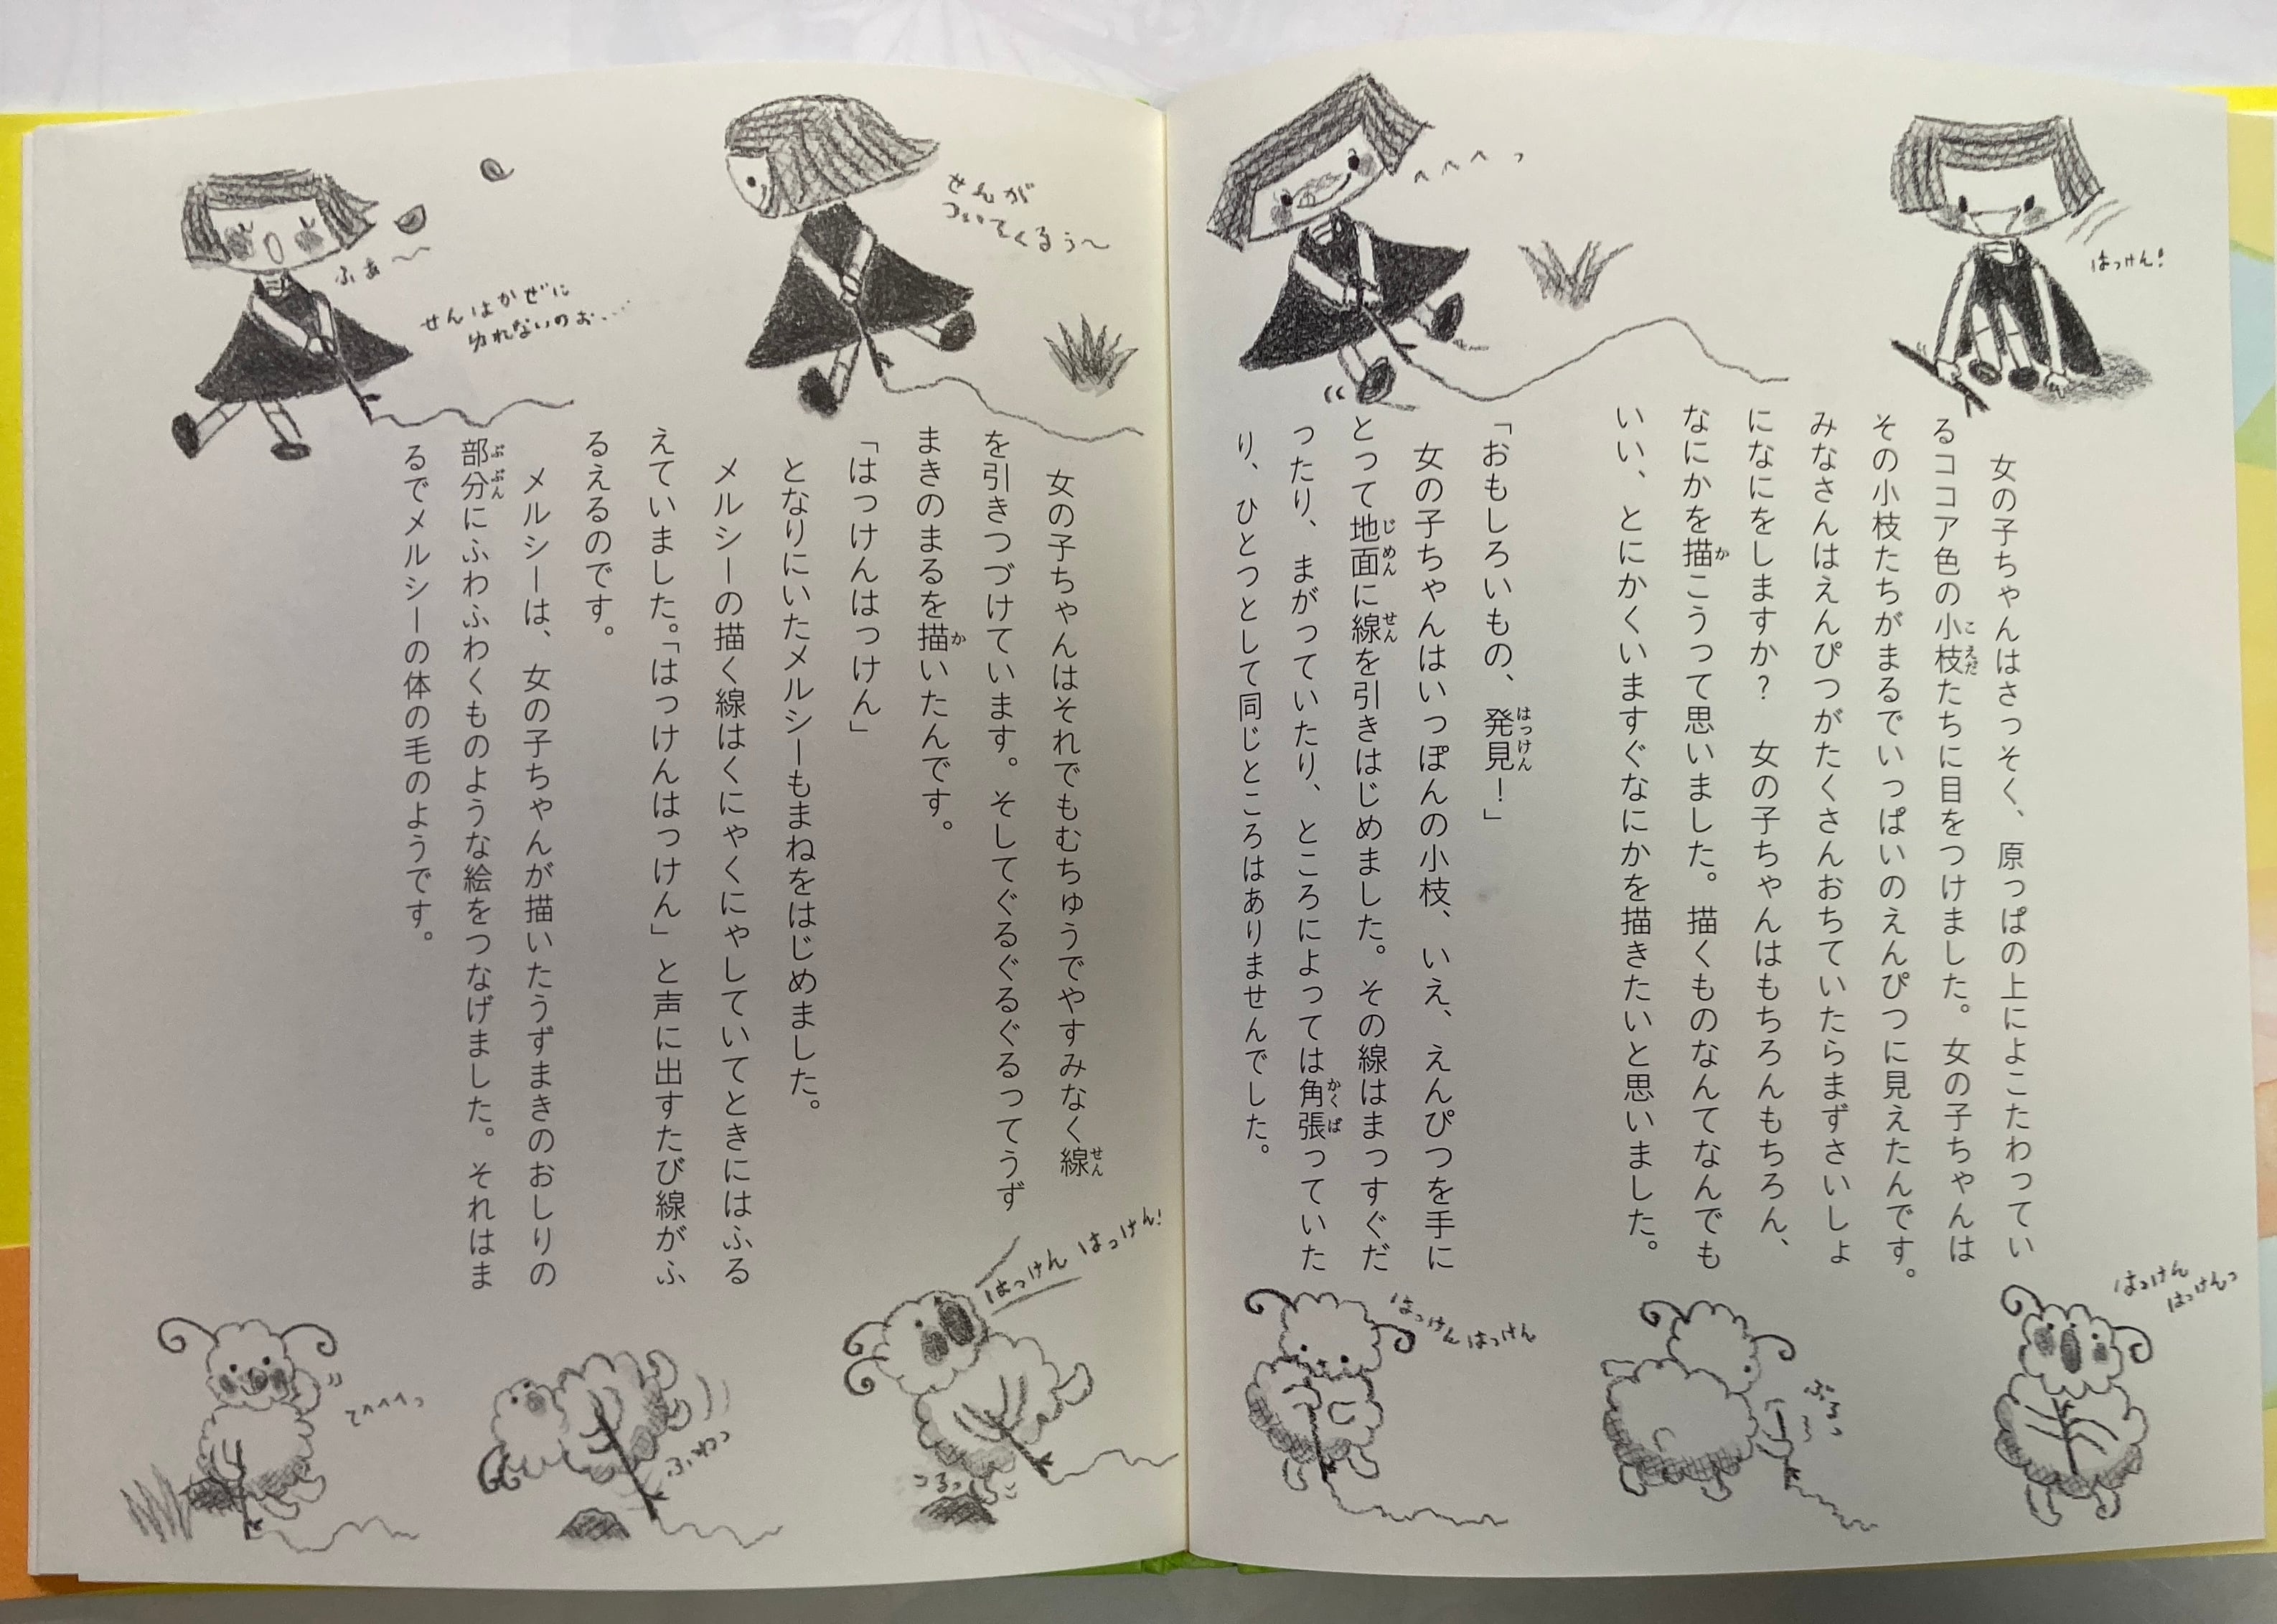 女の子ちゃんはさっそく、原っぱの上によこたわってい
るココア色の小枝たちに目をつけました。女の子ちゃんは
その小枝たちがまるでいっぱいのえんぴつに見えたんです。
みなさんはえんぴつがたくさんおちていたらまずさいしょ
になにをしますか？　女の子ちゃんはもちろんもちろん、
なにかを描こうって思いました。描くものなんてなんでも
いい、とにかくいますぐなにかを描きたいと思いました。
「おもしろいもの、発見！」
女の子ちゃんはいっぽんの小枝、いえ、えんぴつを手に
とって地面に線を引きはじめました。その線はまっすぐだ
ったり、まがっていたり、ところによっては角張っていた
り、ひとつとして同じところはありませんでした。
はっけん！
へへへっ
はっけん
はっけんっ
ぷるっ
はっけんはっけん
女の子ちゃんはそれでもむちゅうでやすみなく線
を引きつづけています。そしてぐるぐるぐるぐるってうず
まきのまるを描いたんです。
「はっけんはっけん」
となりにいたメルシーもまねをはじめました。
メルシーの描く線はくにゃくにゃしていてときにはふる
えていました。「はっけんはっけん」と声に出すたび線がふ
るえるのです。
メルシーは、女の子ちゃんが描いたうずまきのおしりの
部分にふわふわくものような絵をつなげました。それはま
るでメルシーの体の毛のようです。
せんが
ついてくるぅ〜
ふぁ〜
せんはかぜに
ゆれないのぉ...
はっけんはっけん！
つるっ
ふわっ
てへへへっ